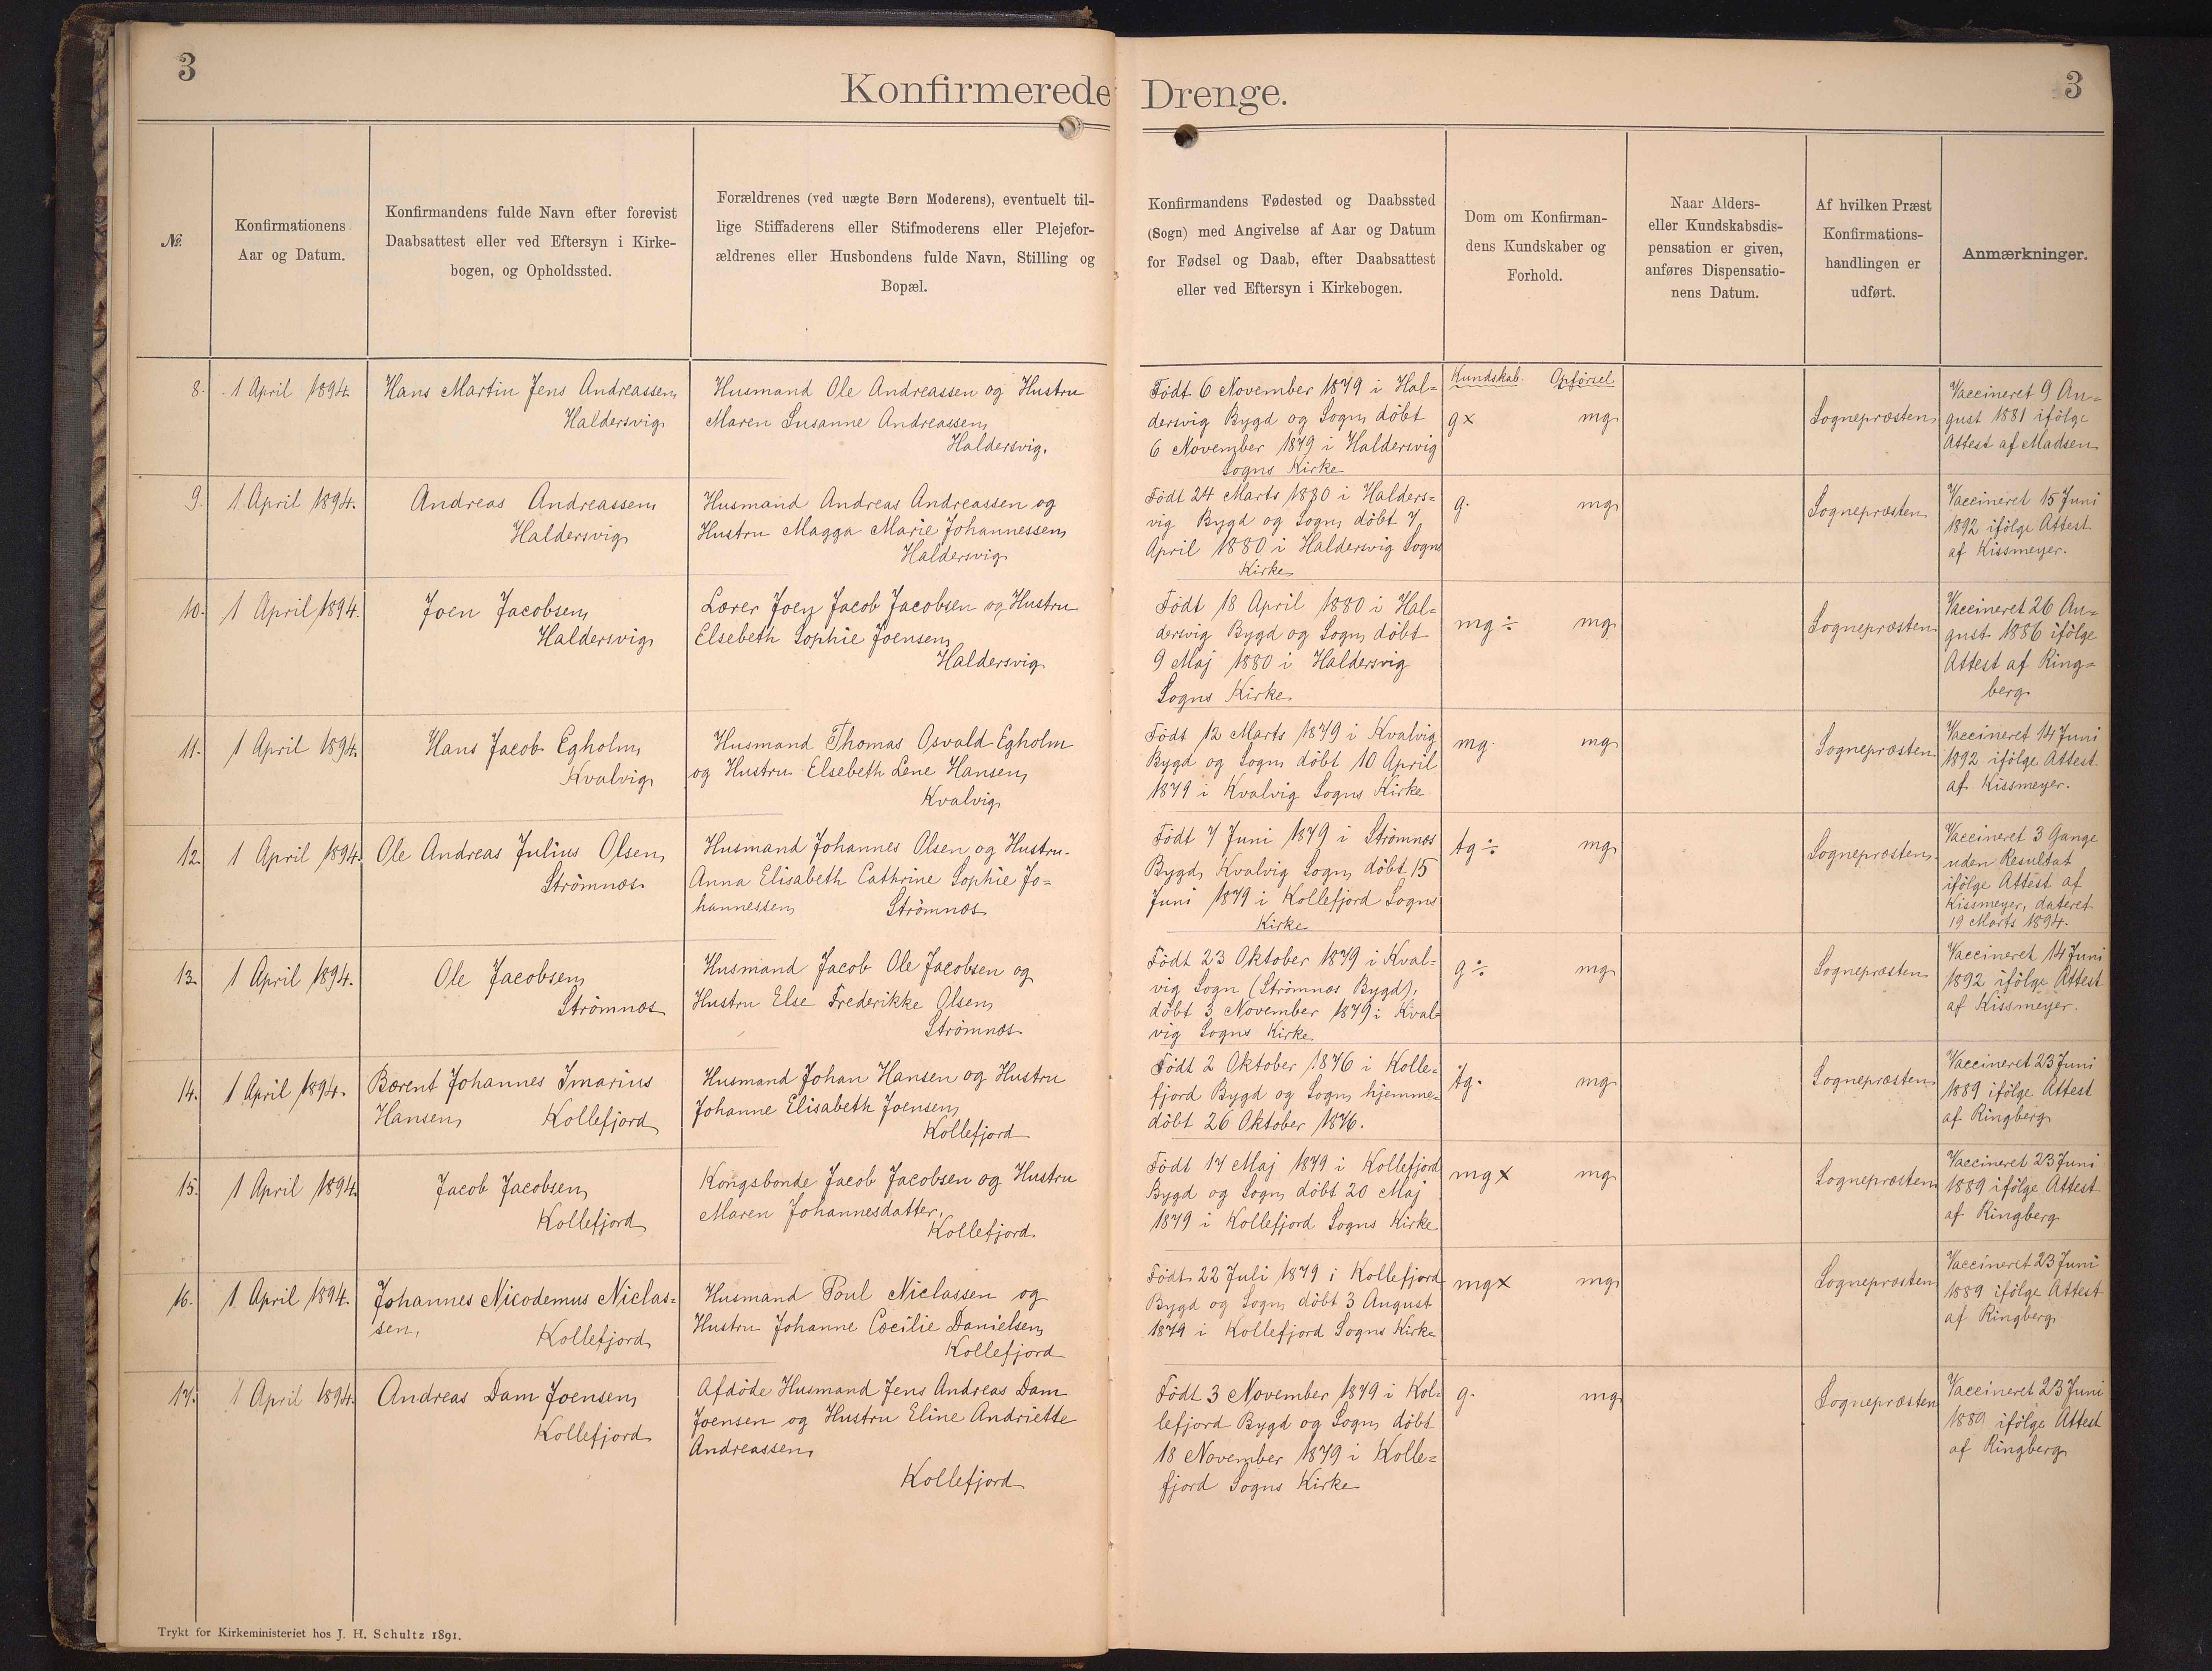 3
3
Konfirmerede Drenge.
№
Konfirmationens
Aar og Datum.
Konfirmandens fulde Navn efter forevist
Daabsattest eller ved Eftersyn i Kirke-
bogen, og Opholdssted.
Forældrenes (ved uægte Børn Moderens), eventuelt til-
lige Stiffaderens eller Stifmoderens eller Plejefor-
ældrenes eller Husbondens fulde Navn, Stilling og
Bopæl.
Konfirmandens Fødested og Daabssted
(Sogn) med Angivelse af Aar og Datum
for Fødsel og Daab, efter Daabsattest
eller ved Eftersyn i Kirkebogen.
Dom om Konfirman-
dens Kundskaber og
Forhold.
Naar Alders-
eller Kundskabsdis-
pensation er given,
anføres Dispensatio-
nens Datum.
Af hvilken Præst
Konfirmations-
handlingen er
udført.
Anmærkninger.
Kundskab. Opførsel
8.
1 April 1894
Hans Martin Jens Andreassen,
Haldersvig
Husmand Ole Andreassen og Hustru
Maren Susanne Andreassen,
Haldersvig.
Födt 6 November 1879 i Hal=
dersvig Bygd og Sogn, döbt
6 November 1879 i Haldersvig
Sogns Kirke
g× mg
Sognepræsten
Vaccineret 9 Au=
gust 1881 ifölge
Attest af Madsen
9.
1 April 1894.
Andreas Andreassen,
Haldersvig
Husmand Andreas Andreassen og
Hustru Magga Marie Johannessen,
Haldersvig
Födt 24 Marts 1880 i Halders=
vig Bygd og Sogn, döbt 7
April 1880 i Haldersvig Sogns
Kirke
g. mg
Sognepræsten
Vaccineret 15 Juni
1892 ifölge Attest
af Kissmeyer.
10.
1 April 1894.
Joen Jacobsen,
Haldersvig
Lærer Joen Jacob Jacobsen og Hustru
Elsebeth Sophie Joensen,
Haldersvig
Födt 18 April 1880 i Hal=
dersvig Bygd og Sogn, döbt
9 Maj 1880 i Haldersvig
Sogns Kirke
mg ÷ mg
Sognepræsten
Vaccineret 26 Au=
gust 1886 ifölge
Attest af Ring=
berg
11.
1 April 1894.
Hans Jacob Egholm,
Kvalvig
Husmand Thomas Osvald Egholm
og Hustru Elsebeth Lene Hansen,
Kvalvig
Födt 12 Marts 1879 i Kvalvig
Bygd og Sogn, döbt 10 April
1879 i Kvalvig Sogns Kirke
mg. mg
Sognepræsten
Vaccineret 14 Juni
1892 ifölge Attest
af Kissmeyer.
12.
1 April 1894.
Ole Andreas Julius Olsen,
Strömnæs
Husmand Johannes Olsen og Hustru
Anna Elisabeth Cathrine Sophie Jo=
hannessen, Strömnæs
Födt 7 Juni 1879 i Strömnæs
Bygd, Kvalvig Sogn, döbt 15
Juni 1879 i Kollefjord Sogns
Kirke
tg ÷ mg
Sognepræsten
Vaccineret 3 Gange
uden Resultat
ifölge Attest af
Kissmeyer, dateret
19 Marts 1894.
13.
1 April 1894.
Ole Jacobsen,
Strömnæs
Husmand Jacob Ole Jacobsen og
Hustru Else Frederikke Olsen,
Strömnæs
Födt 23 Oktober 1879 i Kval=
vig Sogn (Strömnæs Bygd),
döbt 3 November 1879 i Kval=
vig Sogns Kirke
g ÷ mg
Sognepræsten
Vaccineret 14 Juni
1892 ifölge Attest
af Kissmeyer.
14.
1 April 1894.
Bærent Johannes Imarius
Hansen, Kollefjord
Husmand Johan Hansen og Hustru
Johanne Elisabeth Joensen,
Kollefjord
Födt 2 Oktober 1876 i Kolle=
fjord Bygd og Sogn, hjemme=
döbt 26 Oktober 1876.
tg. mg
Sognepræsten
Vaccineret 23 Juni
1889 ifölge Attest
af Ringberg
15.
1 April 1894.
Jacob Jacobsen,
Kollefjord
Kongsbonde Jacob Jacobsen og Hustru
Maren Johannesdatter,
Kollefjord
Födt 17 Maj 1879 i Kollefjord
Bygd og Sogn, döbt 20 Maj
1879 i Kollefjord Sogns Kirke
mg× mg
Sognepræsten
Vaccineret 23 Juni
1889 ifölge Attest
af Ringberg
16.
1 April 1894.
Johannes Nicodemus Niclas=
sen, Kollefjord
Husmand Poul Niclassen og
Hustru Johanne Cæcilie Danielsen,
Kollefjord
Födt 22 Juli 1879 i Kollefjord
Bygd og Sogn, döbt 3 August
1879 i Kollefjord Sogns Kirke
mg× mg
Sognepræsten
Vaccineret 23 Juni
1889 ifölge Attest
af Ringberg
17.
1 April 1894.
Andreas Dam Joensen,
Kollefjord
Afdöde Husmand Jens Andreas Dam
Joensen og Hustru Eline Andriette
Andreassen,
Kollefjord
Födt 3 November 1879 i Kol=
lefjord Bygd og Sogn, döbt
18 November 1879 i Kolle=
fjord Sogns Kirke
g. mg
Sognepræsten
Vaccineret 23 Juni
1889 ifölge Attest
af Ringberg
Trykt for Kirkeministeriet hos J. H. Schultz 1891.